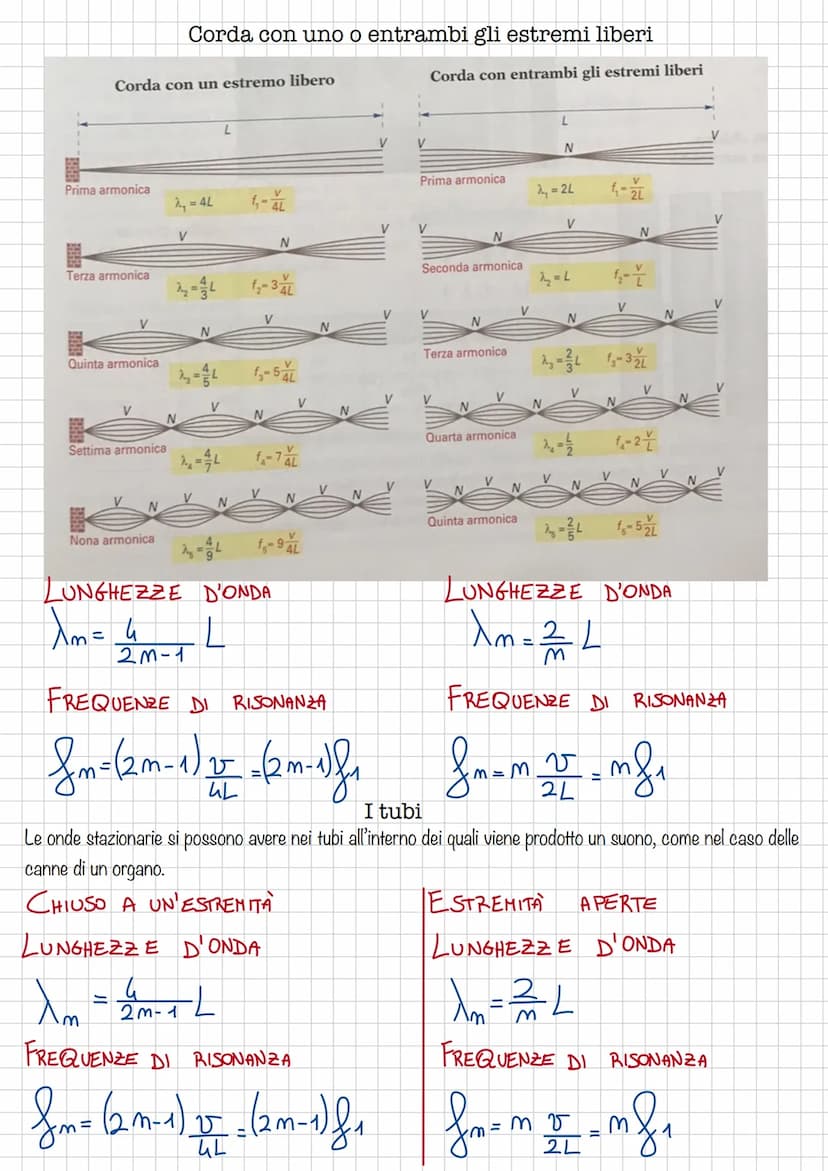 Corda con uno o entrambi gli estremi liberi
Corda con un estremo libero
L
V
Prima armonica
λ₁ = 4L f₁ = v/4L
V N V
Terza armonica
λ₂ = 4/3 L f₂ = 3 v/4L
V N V N V
Quinta armonica
λ₃ = 4/5 L f₃ = 5 v/4L
V N V N V N V
Settima armonica
λ₄ = 4/7 L f₄ = 7 v/4L
V N V N V N V N V
Nona armonica
λ₅ = 4/9 L f₅ = 9 v/4L
Corda con entrambi gli estremi liberi
L
V N V
Prima armonica
λ₁ = 2L f₁ = v/2L
V N V N V
Seconda armonica
λ₂ = L f₂ = v/L
V N V N V N V
Terza armonica
λ₃ = 2/3 L f₃ = 3 v/2L
V N V N V N V N V
Quarta armonica
λ₄ = L/2 f₄ = 2 v/L
V N V N V N V N V N V
Quinta armonica
λ₅ = 2/5 L f₅ = 5 v/2L
LUNGHEZZE D'ONDA
λm = 4/2m-1 L
FREQUENZE DI RISONANZA
fm = (2m-1) v/4L = (2m-1)f₁
LUNGHEZZE D'ONDA
λm = 2/m L
FREQUENZE DI RISONANZA
fm = m v/2L = mf₁
I tubi
Le onde stazionarie si possono avere nei tubi all'interno dei quali viene prodotto un suono, come nel caso delle
canne di un organo.
CHIUSO A UN'ESTREMITÀ
LUNGHEZZE D'ONDA
λm = 4/2m-1 L
FREQUENZE DI RISONANZA
fm = (2m-1) v/4L = (2m-1)f₁
ESTREMITÀ APERTE
LUNGHEZZE D'ONDA
λm = 2/m L
FREQUENZE DI RISONANZA
fm = m v/2L = mf₁